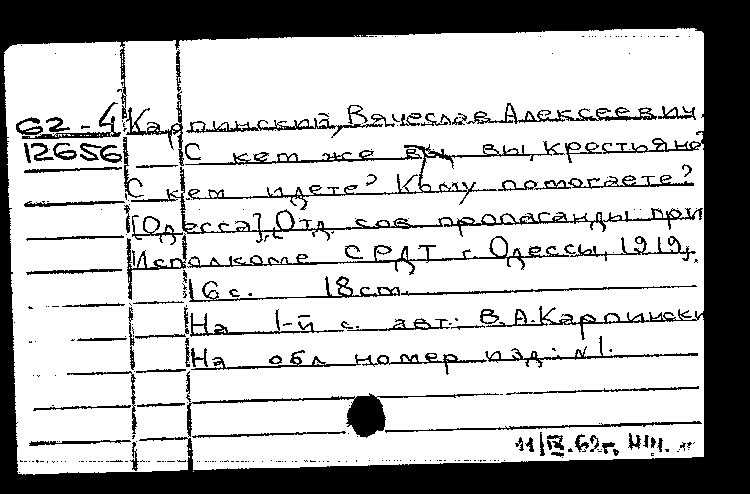 62-4 Карпинский, Вячеслав Алексеевич.
12656 С кем же вы, крестьяне?
С кем идете? Кому помогаете?
[Одесса], Отд сов пропаганды при
Исполкоме СРДТ г. Одессы, 1919г.
16 с. 18 cm.
На 1-й с. авт.: В.А.Карпински
На обл номер изд.: №1.
11/IX.62г.